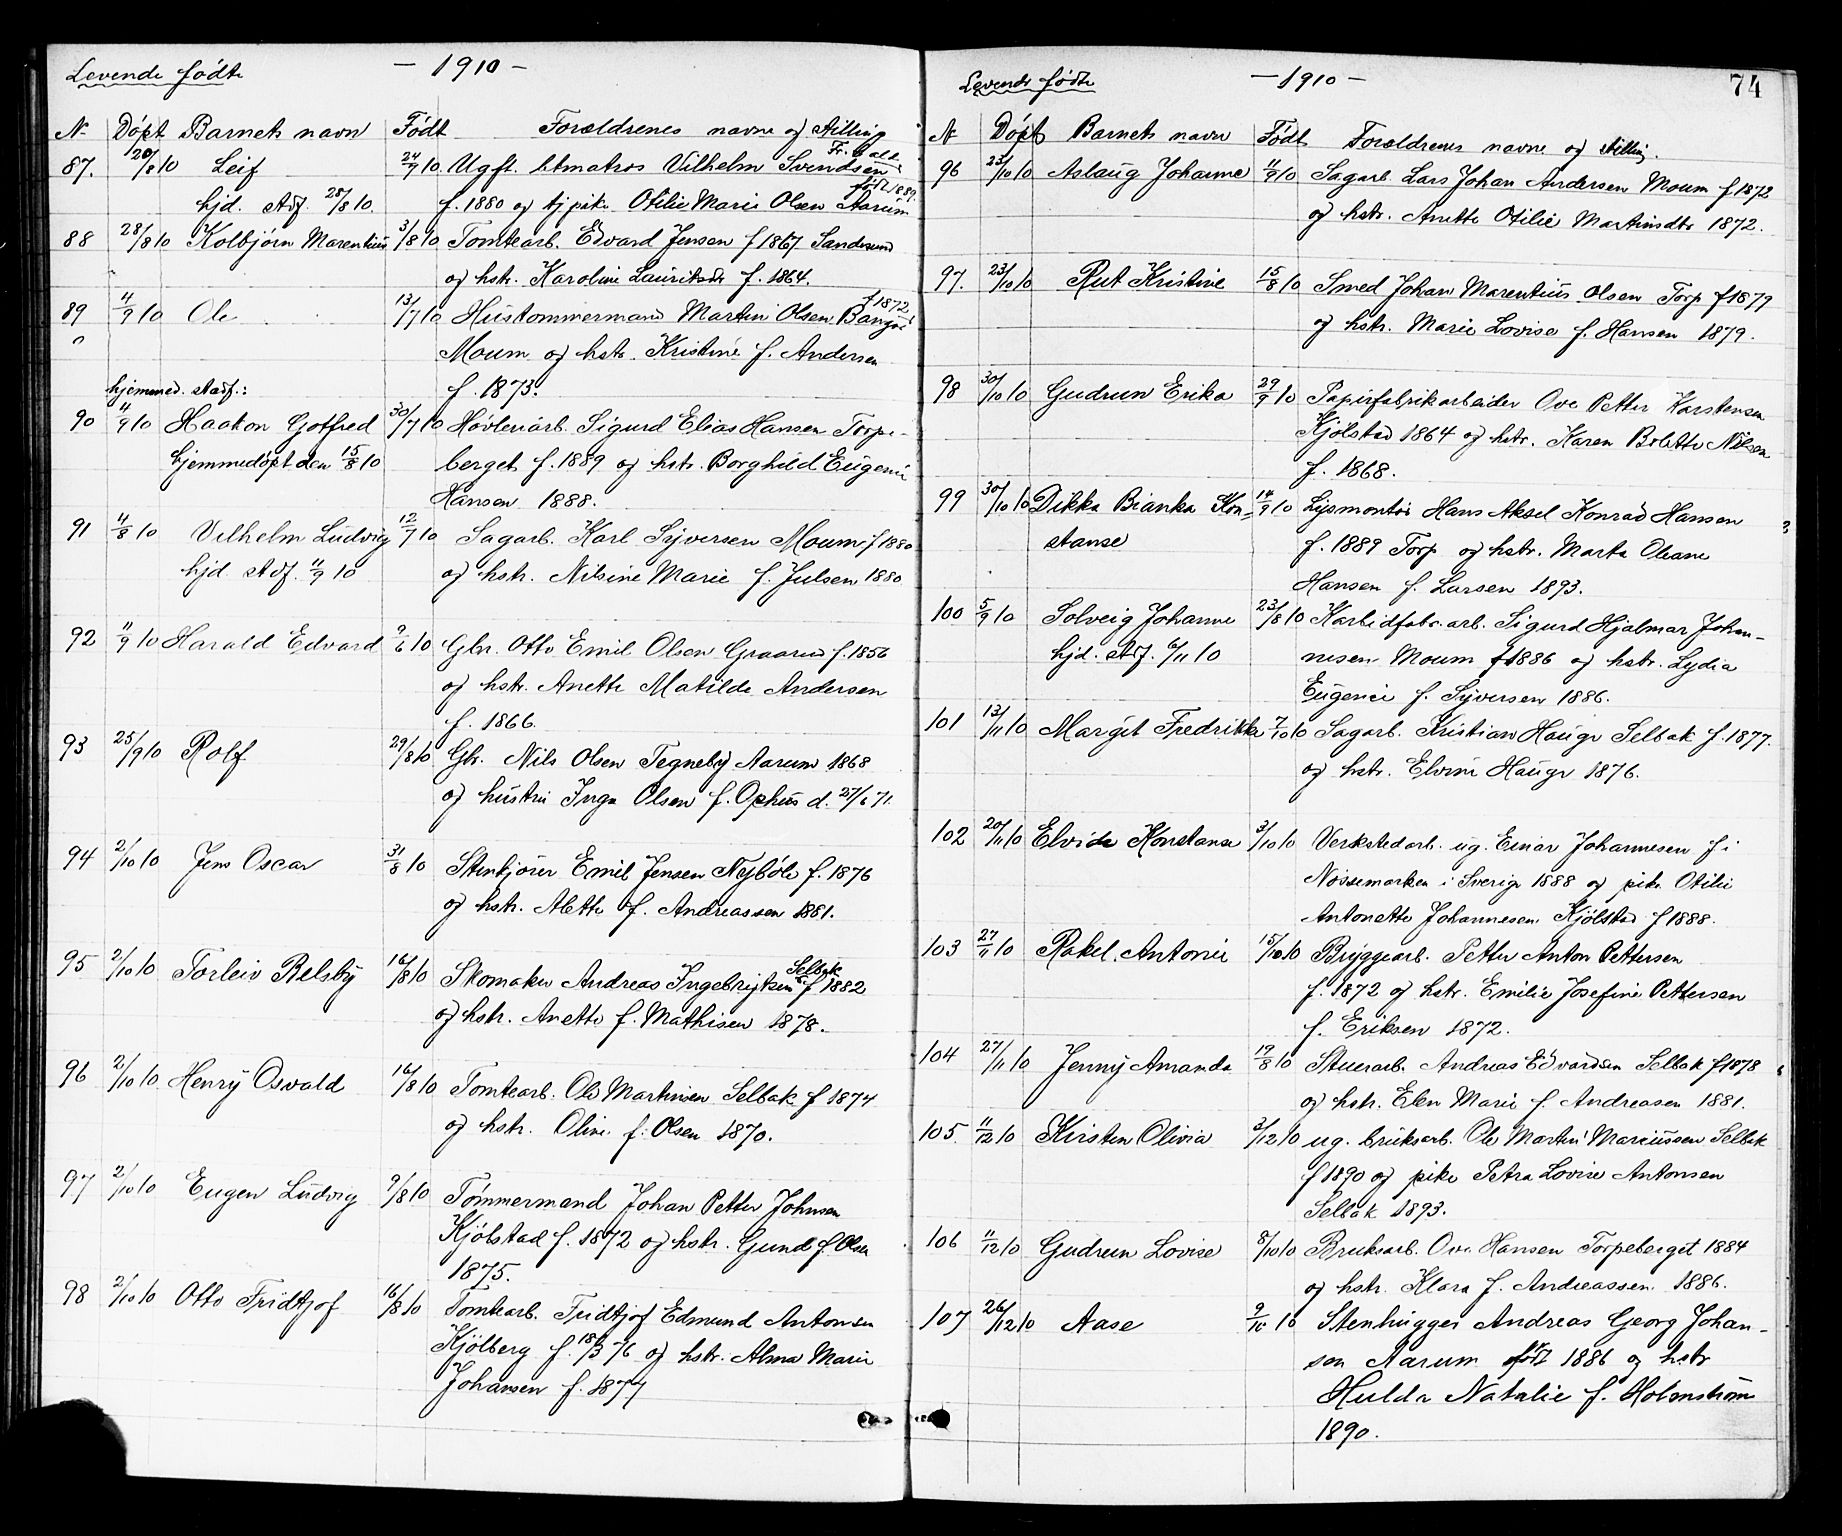 Levende fødte — 1910 —
№ Døpt Barnets navn Født Forældrenes navne og stilling
87. 20/8 10 Leif 24/7 10 Ugft. btmatros Vilhelm Svendsen Fr.hald
hjd. stdf. 28/8 10. f. 1880 og tj.pike Otilie Marie Olsen Aarum født 1889.
88 28/8 10 Kolbjørn Marentius 3/8 10 Tomtearb. Edvard Jensen f 1867 Sandesund
og hstr. Karoline Lauritsdr f. 1864.
89 4/9 10 Ole 13/7 10 Hustømmermand Martin Olsen Bangsi f 1872
Moum og hstr. Kristine f. Andersen
hjemmed. stadf.: f. 1873.
90 4/9 10 Haakon Gotfred 30/7 10 Høvleriarb. Sigurd Elias Hansen Torpe-
hjemmedøpt den 15/8 10 berget f. 1889 og hstr. Borghild Eugenie
Hansen 1888.
91 4/8 10 Vilhelm Ludvig 12/7 10 Sagarb. Karl Syversen Moum f 1880
hjd. stdf. 11/9 10 og hstr. Nilsine Marie f. Julsen 1880
92 11/9 10 Harald Edvard 9/6 10 Gbr. Otto Emil Olsen Graarud f. 1856
og hstr. Anette Matilde Andersen
f. 1866.
93 25/9 10 Rolf 29/8 10 Gbr. Nils Olsen Tegneby Aarum 1868
og hustru Inga Olsen f. Ophus d. 27/6 71.
94 2/10 10 Jens Oscar 31/8 10 Stenkjører Emil Jensen Nybøle f. 1876
og hstr. Alette f. Andreassen 1881.
95 2/10 10 Torleiv Relsby 16/8 10 Skomaker Andreas Ingebrigtsen Selbak f 1882
og hstr. Anette f. Mathisen 1878.
96 2/10 10 Henry Osvald 16/8 10 Tomtearb. Ole Martinsen Selbak f 1874
og hstr. Oline f. Olsen 1870.
97 2/10 10 Eugen Ludvig 9/8 10 Tømmermand Johan Petter Johnsen
Kjølstad f. 1872 og hstr. Gund f. Olsen
1875.
98 2/10 10 Otto Fridtjof 16/8 10 Tomtearb. Fridtjof Edmund Antonsen
Kjølberg f. 18/3 76 og hstr. Alma Marie
Johansen f. 1877
Levende fødte — 1910 — 74
№ Døpt Barnets navn Født Forældrenes navne og stilling.
96 23/10 10 Aslaug Johanne 11/9 10 Sagarb. Lars Johan Andersen Moum f 1872
og hstr. Anette Otilie Martinsdtr 1872.
97. 23/10 10 Rut Kristine 15/8 10 Smed Johan Marentius Olsen Torp f 1879
og hstr. Marie Lovise f. Hansen 1879.
98 30/10 10 Gudrun Erika 29/9 10 Papirfabrikarbeider Ove Petter Karstensen
Kjølstad 1864 og hstr. Karen Bolette Nilsen
f. 1868.
99 30/10 10 Dikka Bianka Kon= 14/9 10 Lysmontør Hans Aksel Konrad Hansen
stanse f. 1889 Torp og hstr. Marta Oleane
Hansen f. Larsen 1893.
100 5/9 10 Solveig Johanne 23/8 10 Karbidfabr.arb. Sigurd Hjalmar Johan-
hjd. stdf. 6/11 10 nesen Moum f 1886 og hstr. Lydia
Eugenie f. Syversen 1886.
101 13/11 10 Margit Fredrikke 7/10 10 Sagarb. Kristian Hauge Selbak f. 1877.
og hstr. Elvine Hauge 1876.
102 20/11 10 Elvida Konstanse 3/10 10 Verkstedarb. ug. Einar Johannesen f i
Nøssemarken i Sverige 1888 og pike Otilie
Antonette Johannesen Kjølstad f 1888.
103 27/11 10 Rakel Antonie 15/10 10 Bryggearb. Petter Anton Pettersen
f. 1872 og hstr. Emilie Josefine Pettersen
f. Eriksen 1872.
104 27/11 10 Jenny Amanda 19/8 10 Stuerarb. Andreas Edvardsen Selbak f 1878
og hstr. Elen Marie f. Andreasen 1881.
105. 11/12 10 Kirsten Olivia 3/12 10 ug. bruksarb. Ole Martin Marciussen Selbak
f 1890 og pike Petra Lovise Antonsen
Selbak 1893.
106 11/12 10 Gudrun Lovise 8/10 10 Bruksarb. Ove Hansen Torpeberget 1884
og hstr. Klara f. Andreassen 1886.
107 26/12 10 Aase 9/10 10 Stenhugger Andreas Georg Johan-
sen Aarum født 1886 og hstr
Hulda Natalie f. Holmstrøm
1890.